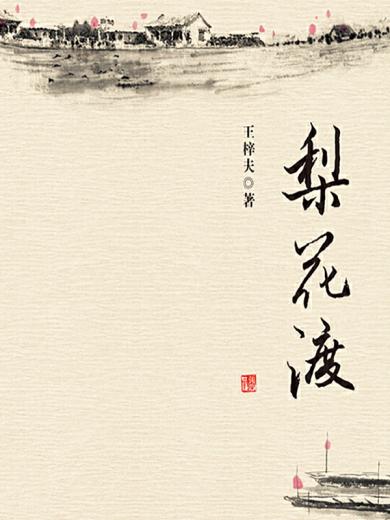 梨花渡
王梓夫◎著